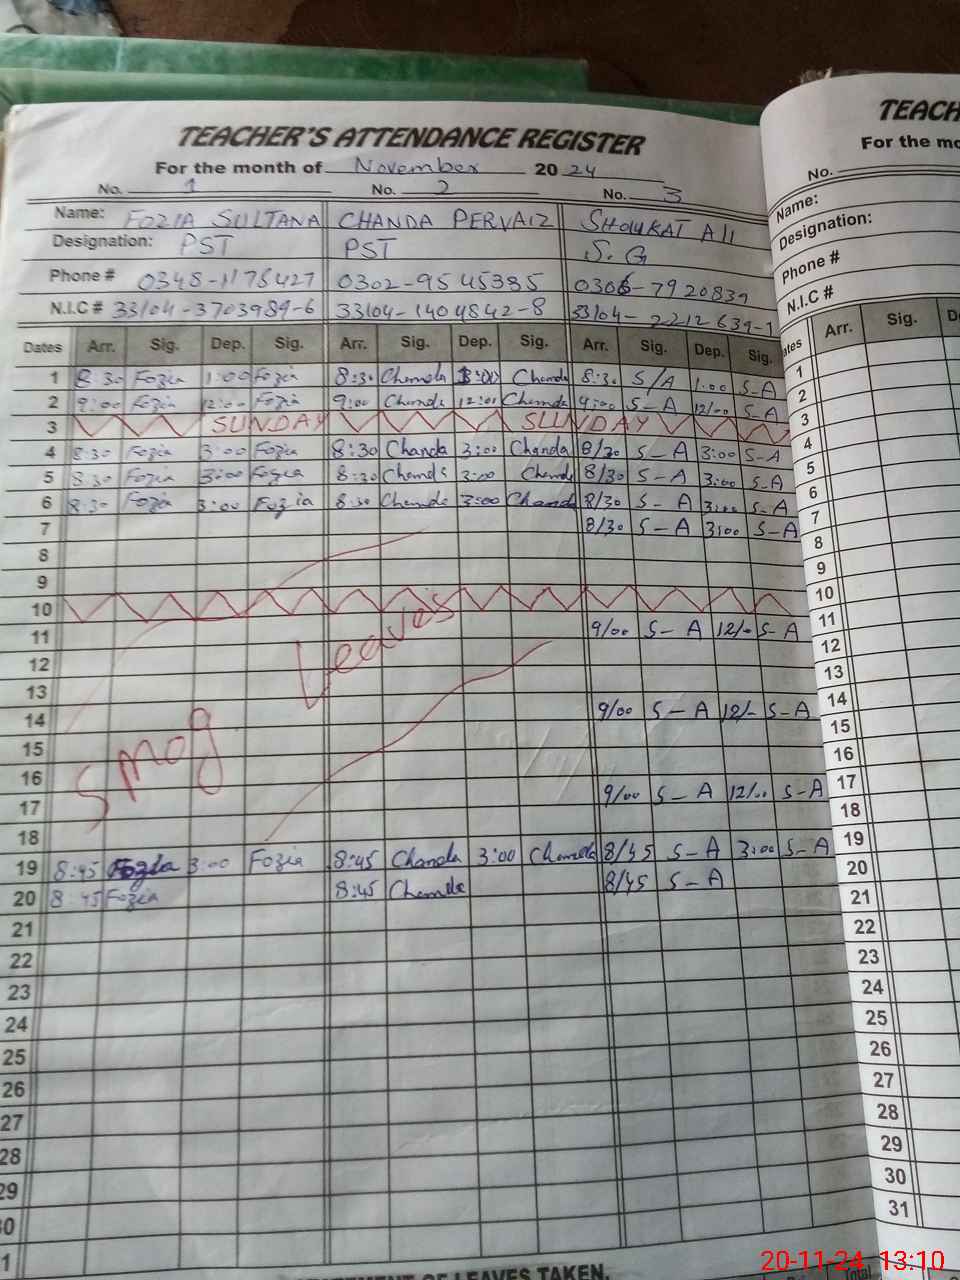 TEACHER'S ATTENDANCE REGISTER
For the month of November 20 24
No. 1 No. 2 No. 3
Name: FOZIA SULTANA CHANDA PERVAIZ SHOUKAT Ali
Designation: PST PST S.G
Phone # 0348-1178427 0302-9545385 0306-7920839
N.I.C # 33104-3703989-6 33104-1404842-8 33104-2212639-
Dates Arr. Sig. Dep. Sig. Arr. Sig. Dep. Sig. Arr. Sig. Dep. Sig.
1 8 30 Fozia 1:00 Fozia 8:30 Chanda 1:00 Chanda 8:30 S/A 1:00 S-A
2 9:00 Fozia 12:00 Fozia 9:00 Chanda 12:00 Chanda 9:00 S-A 12/00 S-A
3 SUNDAY SUNDAY
4 8:30 Fozia 3:00 Fozia 8:30 Chanda 3:00 Chanda 8/30 S-A 3:00 S-A
5 8 30 Fozia 3:00 Fozia 8:30 Chanda 3:00 Chand 8/30 S-A 3:00 S-A
6 8:30 Fozia 3:00 Fozia 8:30 Chanda 3:00 Chanda 8/30 S-A 3:00 S-A
7 8/30 S-A 3:00 S-A
8
9
10
11 9/00 S-A 12/- S-A
12
13
14 9/00 S-A 12/- S-A
15
16
17 9/00 S-A 12/00 S-A
18
Smog Leaves
19 8:45 Fozia 3:00 Fozia 8:45 Chanda 3:00 Chanda 8/45 S-A 3:00 S-A
20 8:45 Fozia 8:45 Chanda 8/45 S-A
21
22
23
24
25
26
27
28
29
30
31
OF LEAVES TAKEN.
TEACH
For the mo
No.
Name:
Designation:
Phone #
N.I.C #
ates Arr. Sig. D
1
2
3
4
5
6
7
8
9
10
11
12
13
14
15
16
17
18
19
20
21
22
23
24
25
26
27
28
29
30
31
20-11-24 13:10